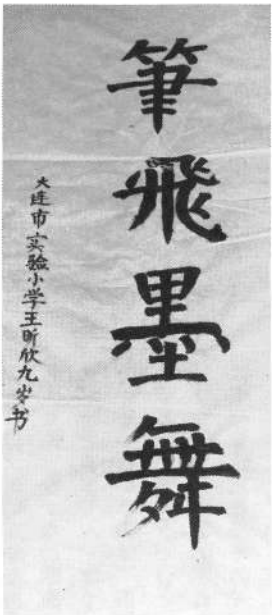 筆飛墨舞
大连市实验小学王昕欣九岁书